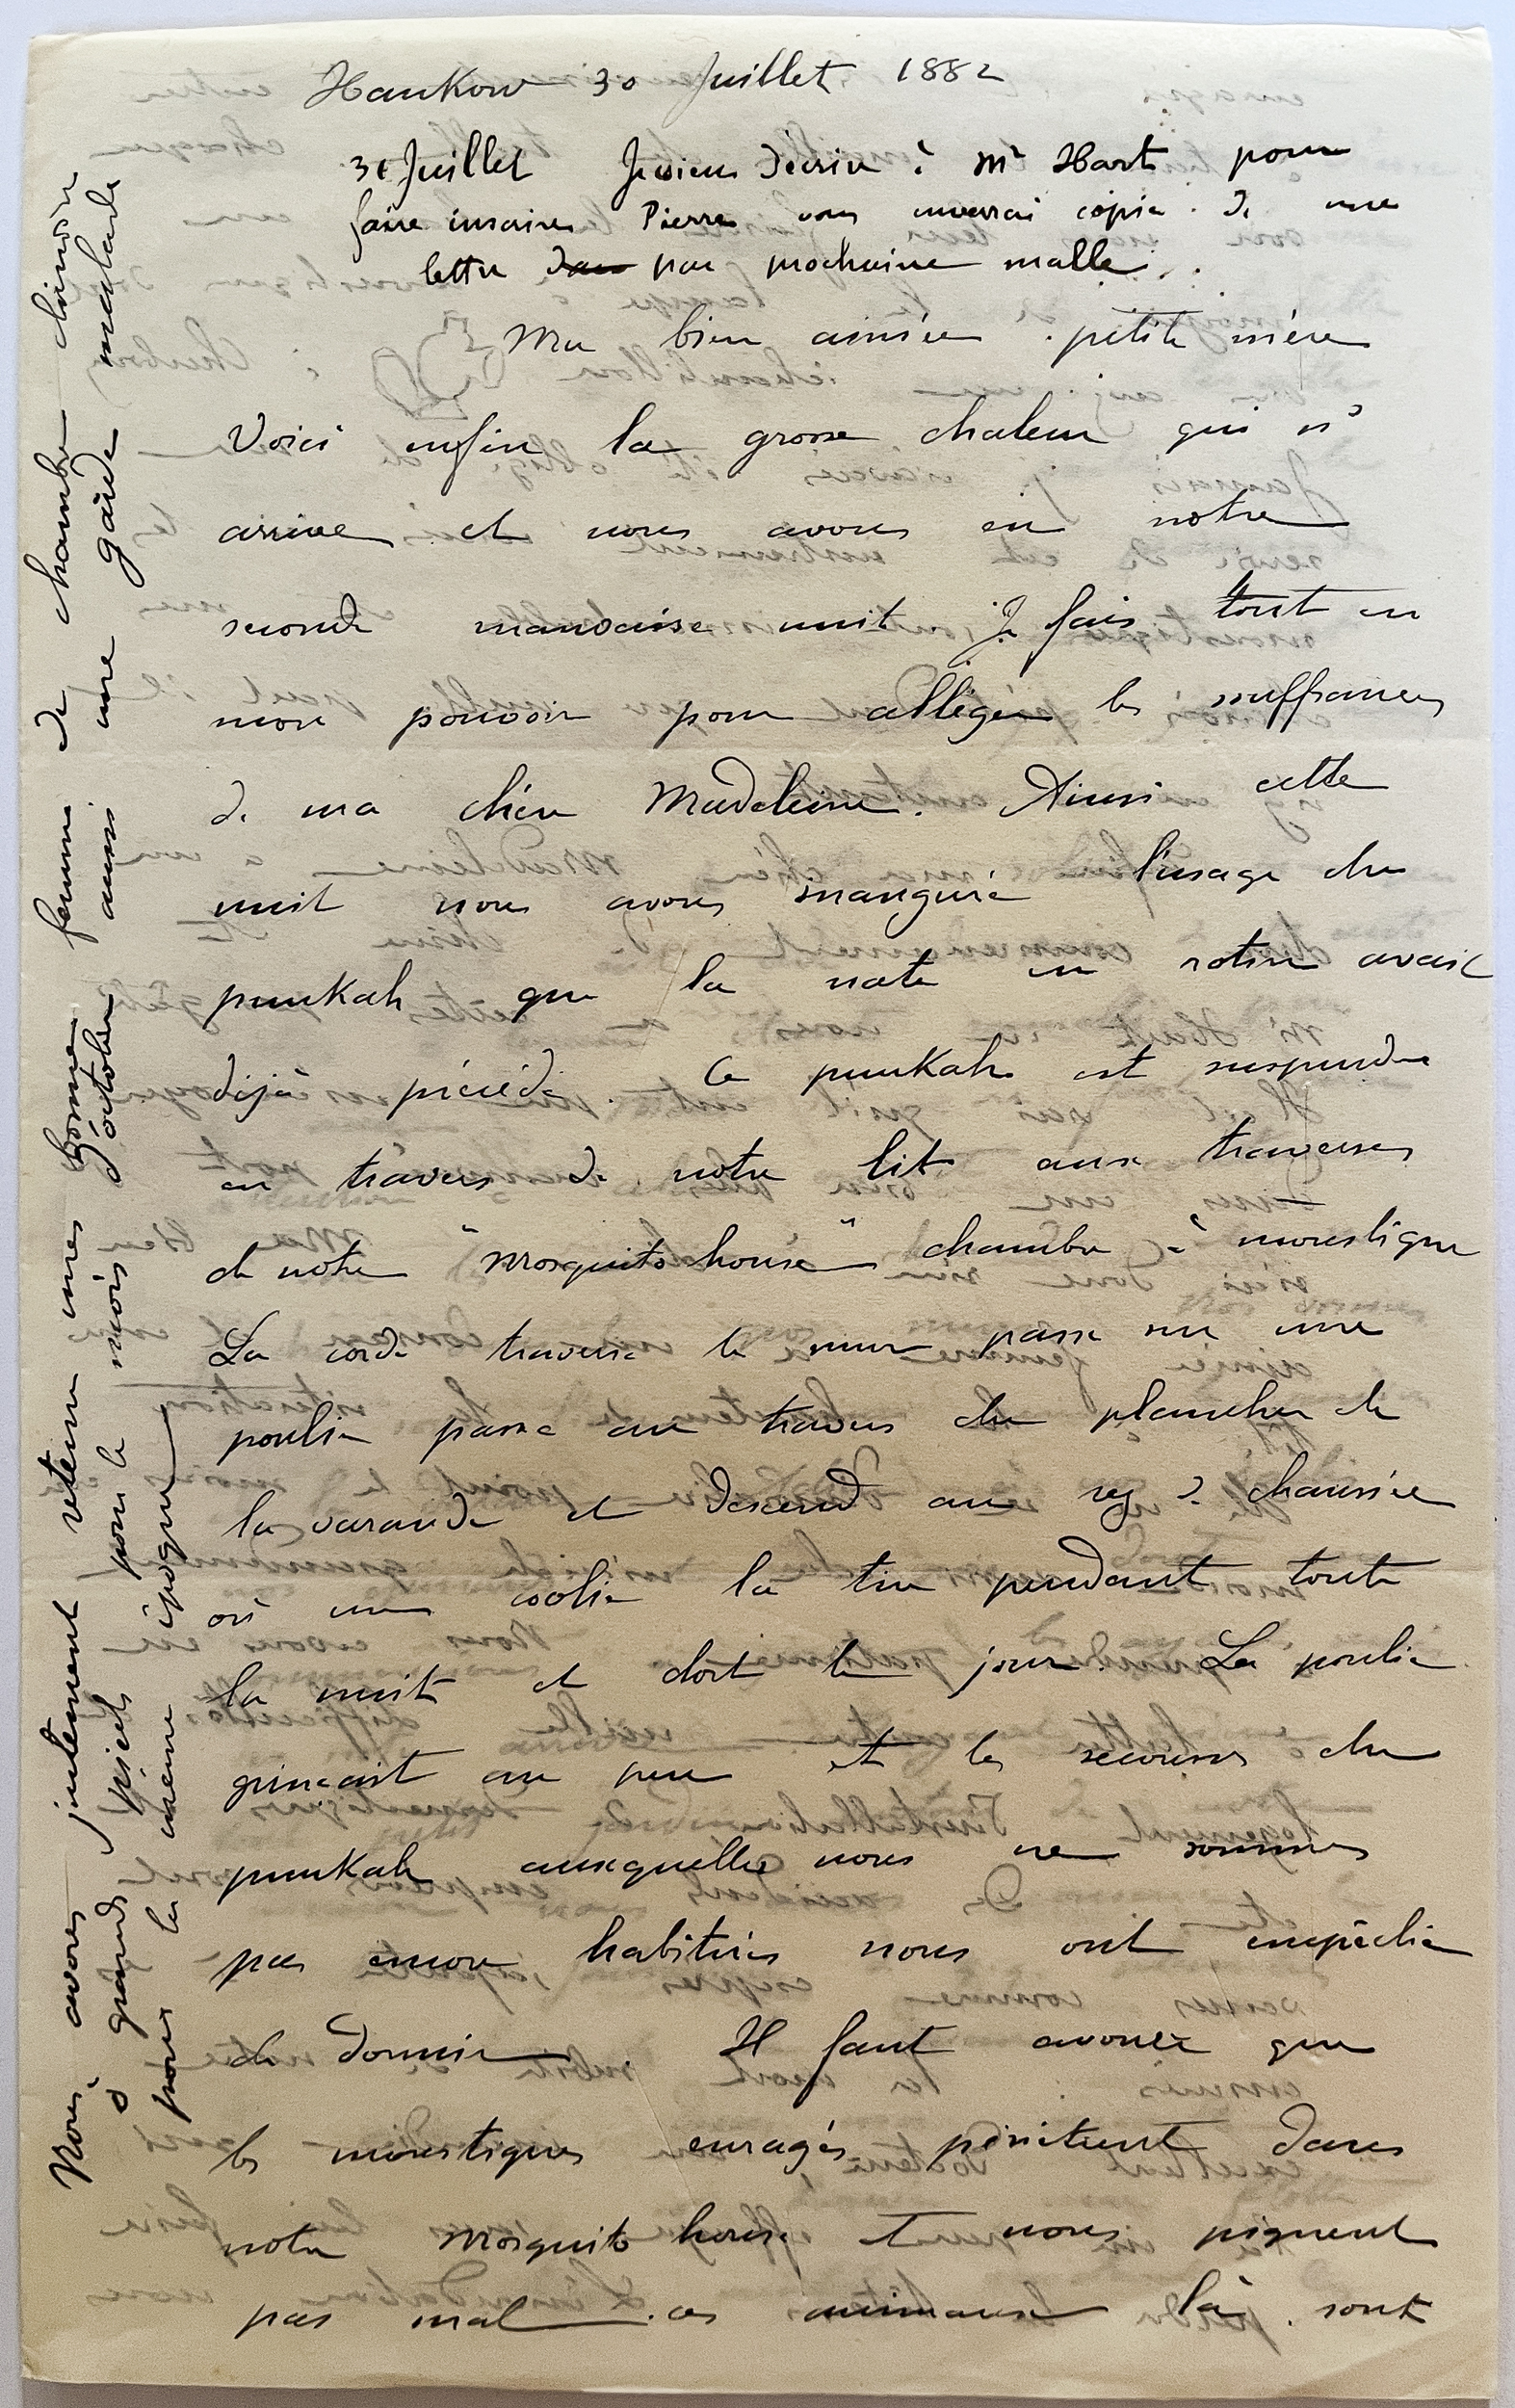 Hankow 30 Juillet 1882
31 Juillet Je viens d'écrire à Mr Hart pour
faire inscrire Pierre vous enverrai copie de ma
lettre dans par prochaine malle.
Ma bien aimée petite mère
Voici enfin la grosse chaleur qui
arrive et nous avons eu notre
seconde mauvaise nuit. Je fais tout en
mon pouvoir pour alléger les souffrances
de ma chère Madeleine. Ainsi cette
nuit nous avons inauguré l'usage du
punkah que la natte en rotin avait
déjà précédé. Ce punkah est suspendu
en travers de notre lit aux traverses
de notre "mosquito house" chambre à moustique
La corde traverse le mur passe sur une
poulie passe au travers du plancher de
la varande et descend au rez de chaussée
où un coolie la tire pendant toute
la nuit et dort le jour. La poulie
grinçait un peu et les secousses du
punkah auxquelles nous ne sommes
pas encore habitués nous ont empêché
de dormir. Il faut avouer que
les moustiques enragés pénètrent dans
notre mosquito house et nous piquent
pas mal. ces animaux là sont
Nous avons justement retenu une bonne femme de chambre chinoise
à grands pieds pour le mois d'octobre aussi une garde malade
pour la même époque